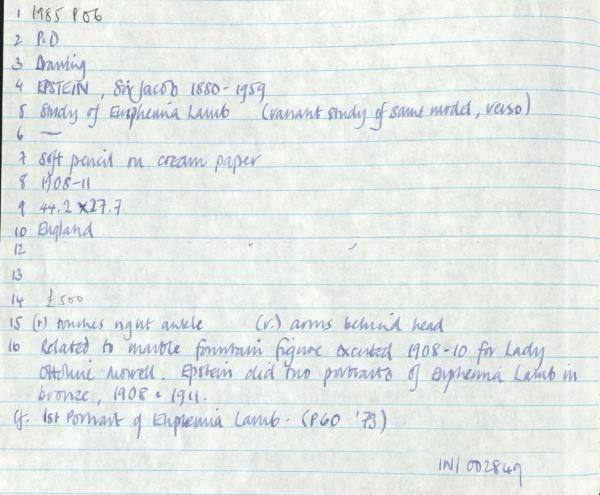 1 1985 P 06
2 P&D
3 Drawing
4 EPSTEIN, Sir Jacob 1880-1959
5 Study of Euphemia Lamb (variant study of same model, verso)
6 —
7 Soft pencil on cream paper
8 1908-11
9 44.2 x 27.7
10 England
12
13
14 £500
15 (r) touches right ankle (v.) arms behind head
16 Related to marble fountain figure excuted 1908-10 for Lady
Ottoline Morrell. Epstein did two portraits of Euphemia Lamb in
bronze, 1908 & 1911.
Cf. 1st Portrait of Euphemia Lamb. (P60 '73)
IN/002849